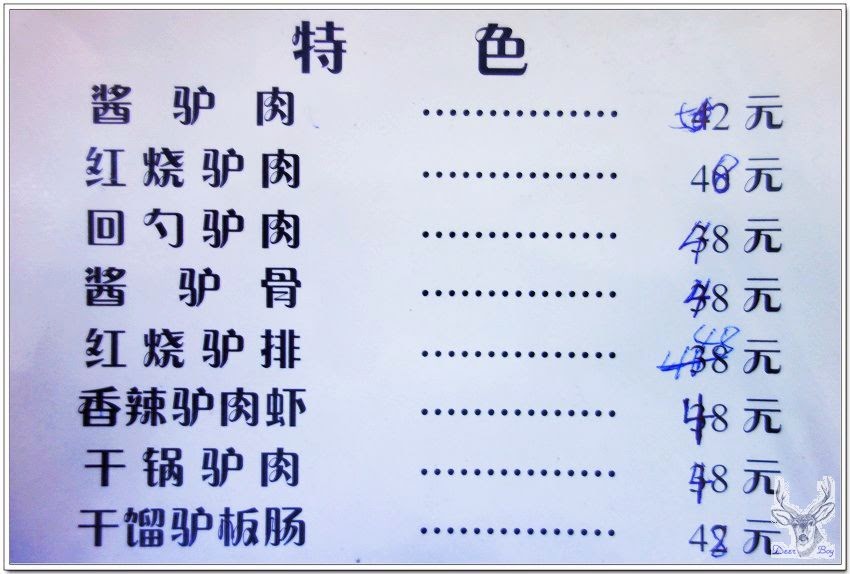 特 色
酱 驴 肉 …………… 52 元
红 烧 驴 肉 …………… 48 元
回 勺 驴 肉 …………… 48 元
酱 驴 骨 …………… 48 元
红 烧 驴 排 …………… 48 元
香辣驴肉虾 …………… 48 元
干 锅 驴 肉 …………… 48 元
干馏驴板肠 …………… 48 元
Deer Boy